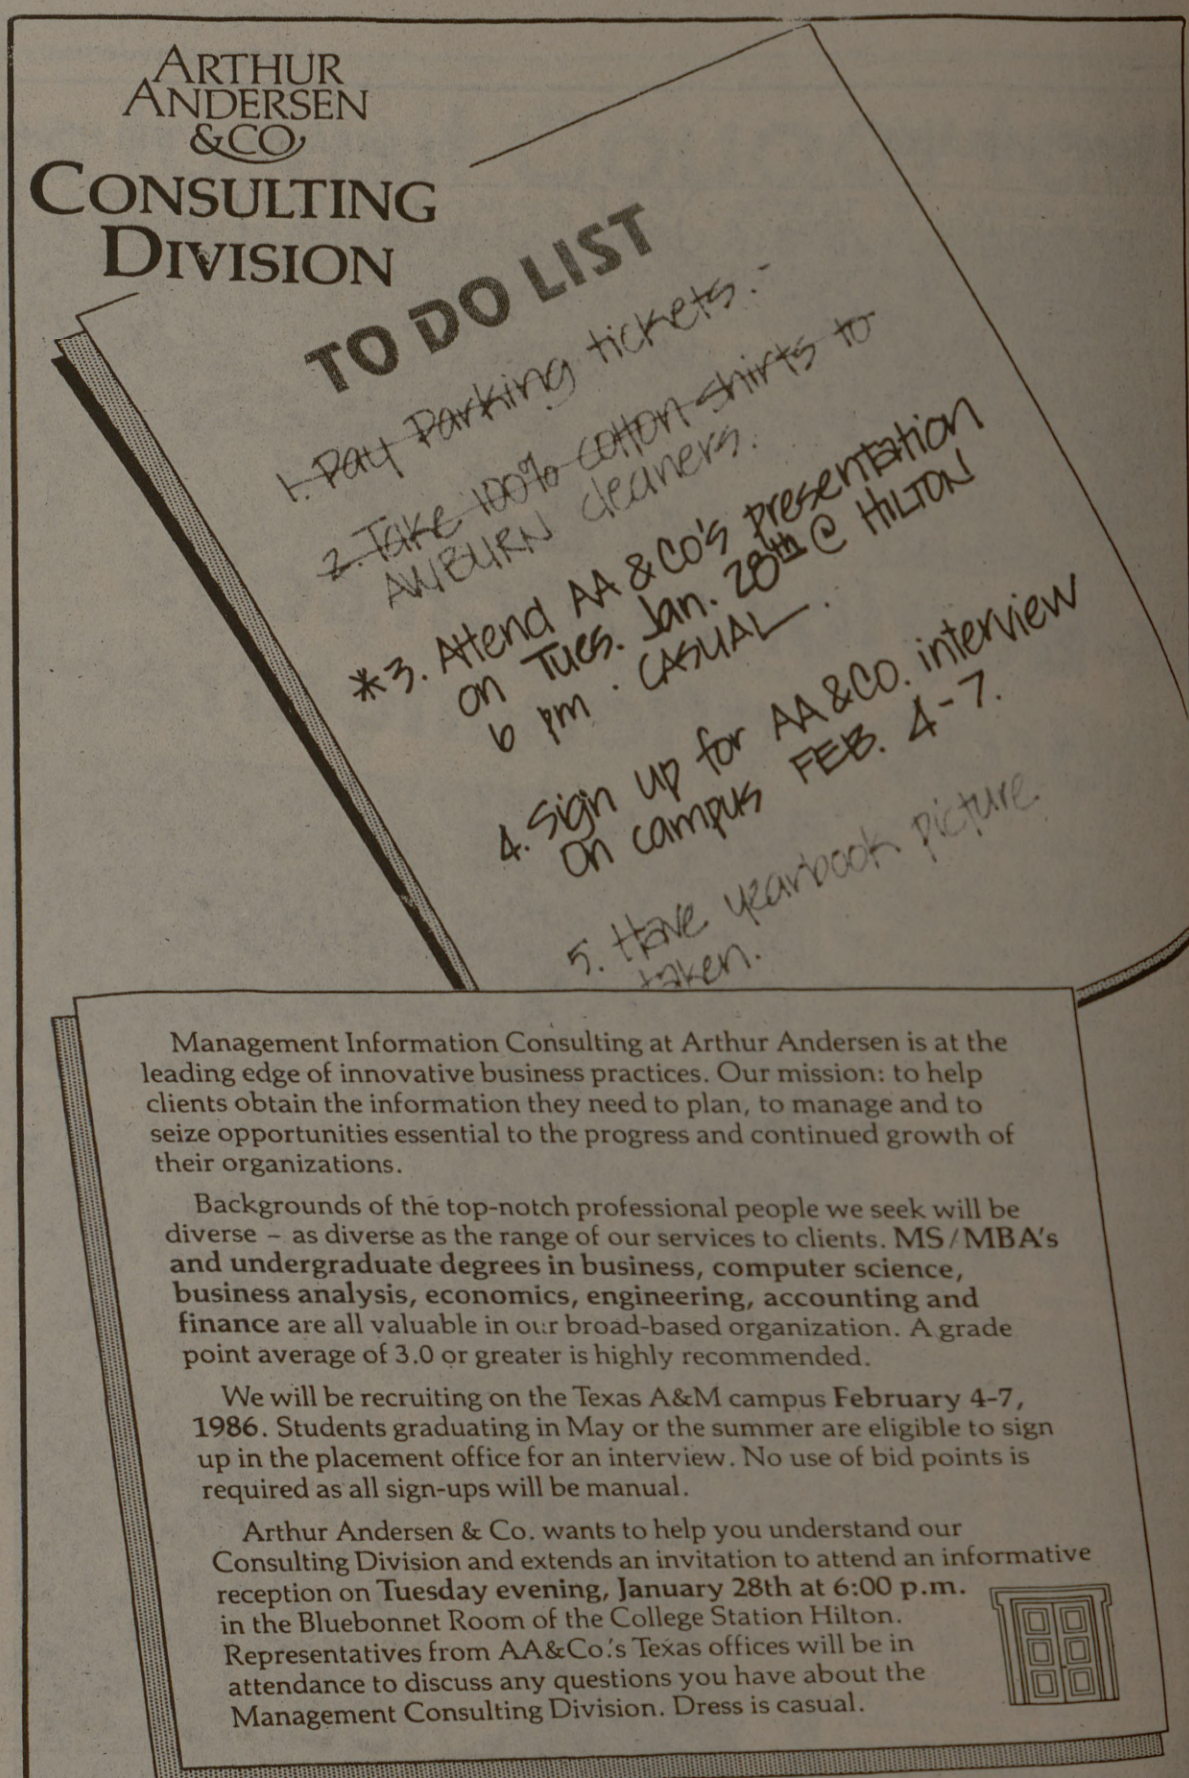 ARTHUR
ANDERSEN
&CO
CONSULTING
DIVISION
TO DO LIST
1. Pay Parking tickets.
2. Take 100% cotton shirts to
AWBURN cleaners.
*3. Attend AA & CO's presentation
on Tues. Jan. 28th @ HILTON
6 pm · CASUAL.
4. Sign up for AA & CO. interview
on campus FEB. 4-7.
5. Have yearbook picture
taken.
Management Information Consulting at Arthur Andersen is at the
leading edge of innovative business practices. Our mission: to help
clients obtain the information they need to plan, to manage and to
seize opportunities essential to the progress and continued growth of
their organizations.
Backgrounds of the top-notch professional people we seek will be
diverse – as diverse as the range of our services to clients. MS/MBA's
and undergraduate degrees in business, computer science,
business analysis, economics, engineering, accounting and
finance are all valuable in our broad-based organization. A grade
point average of 3.0 or greater is highly recommended.
We will be recruiting on the Texas A&M campus February 4-7,
1986. Students graduating in May or the summer are eligible to sign
up in the placement office for an interview. No use of bid points is
required as all sign-ups will be manual.
Arthur Andersen & Co. wants to help you understand our
Consulting Division and extends an invitation to attend an informative
reception on Tuesday evening, January 28th at 6:00 p.m.
in the Bluebonnet Room of the College Station Hilton.
Representatives from AA&Co.'s Texas offices will be in
attendance to discuss any questions you have about the
Management Consulting Division. Dress is casual.